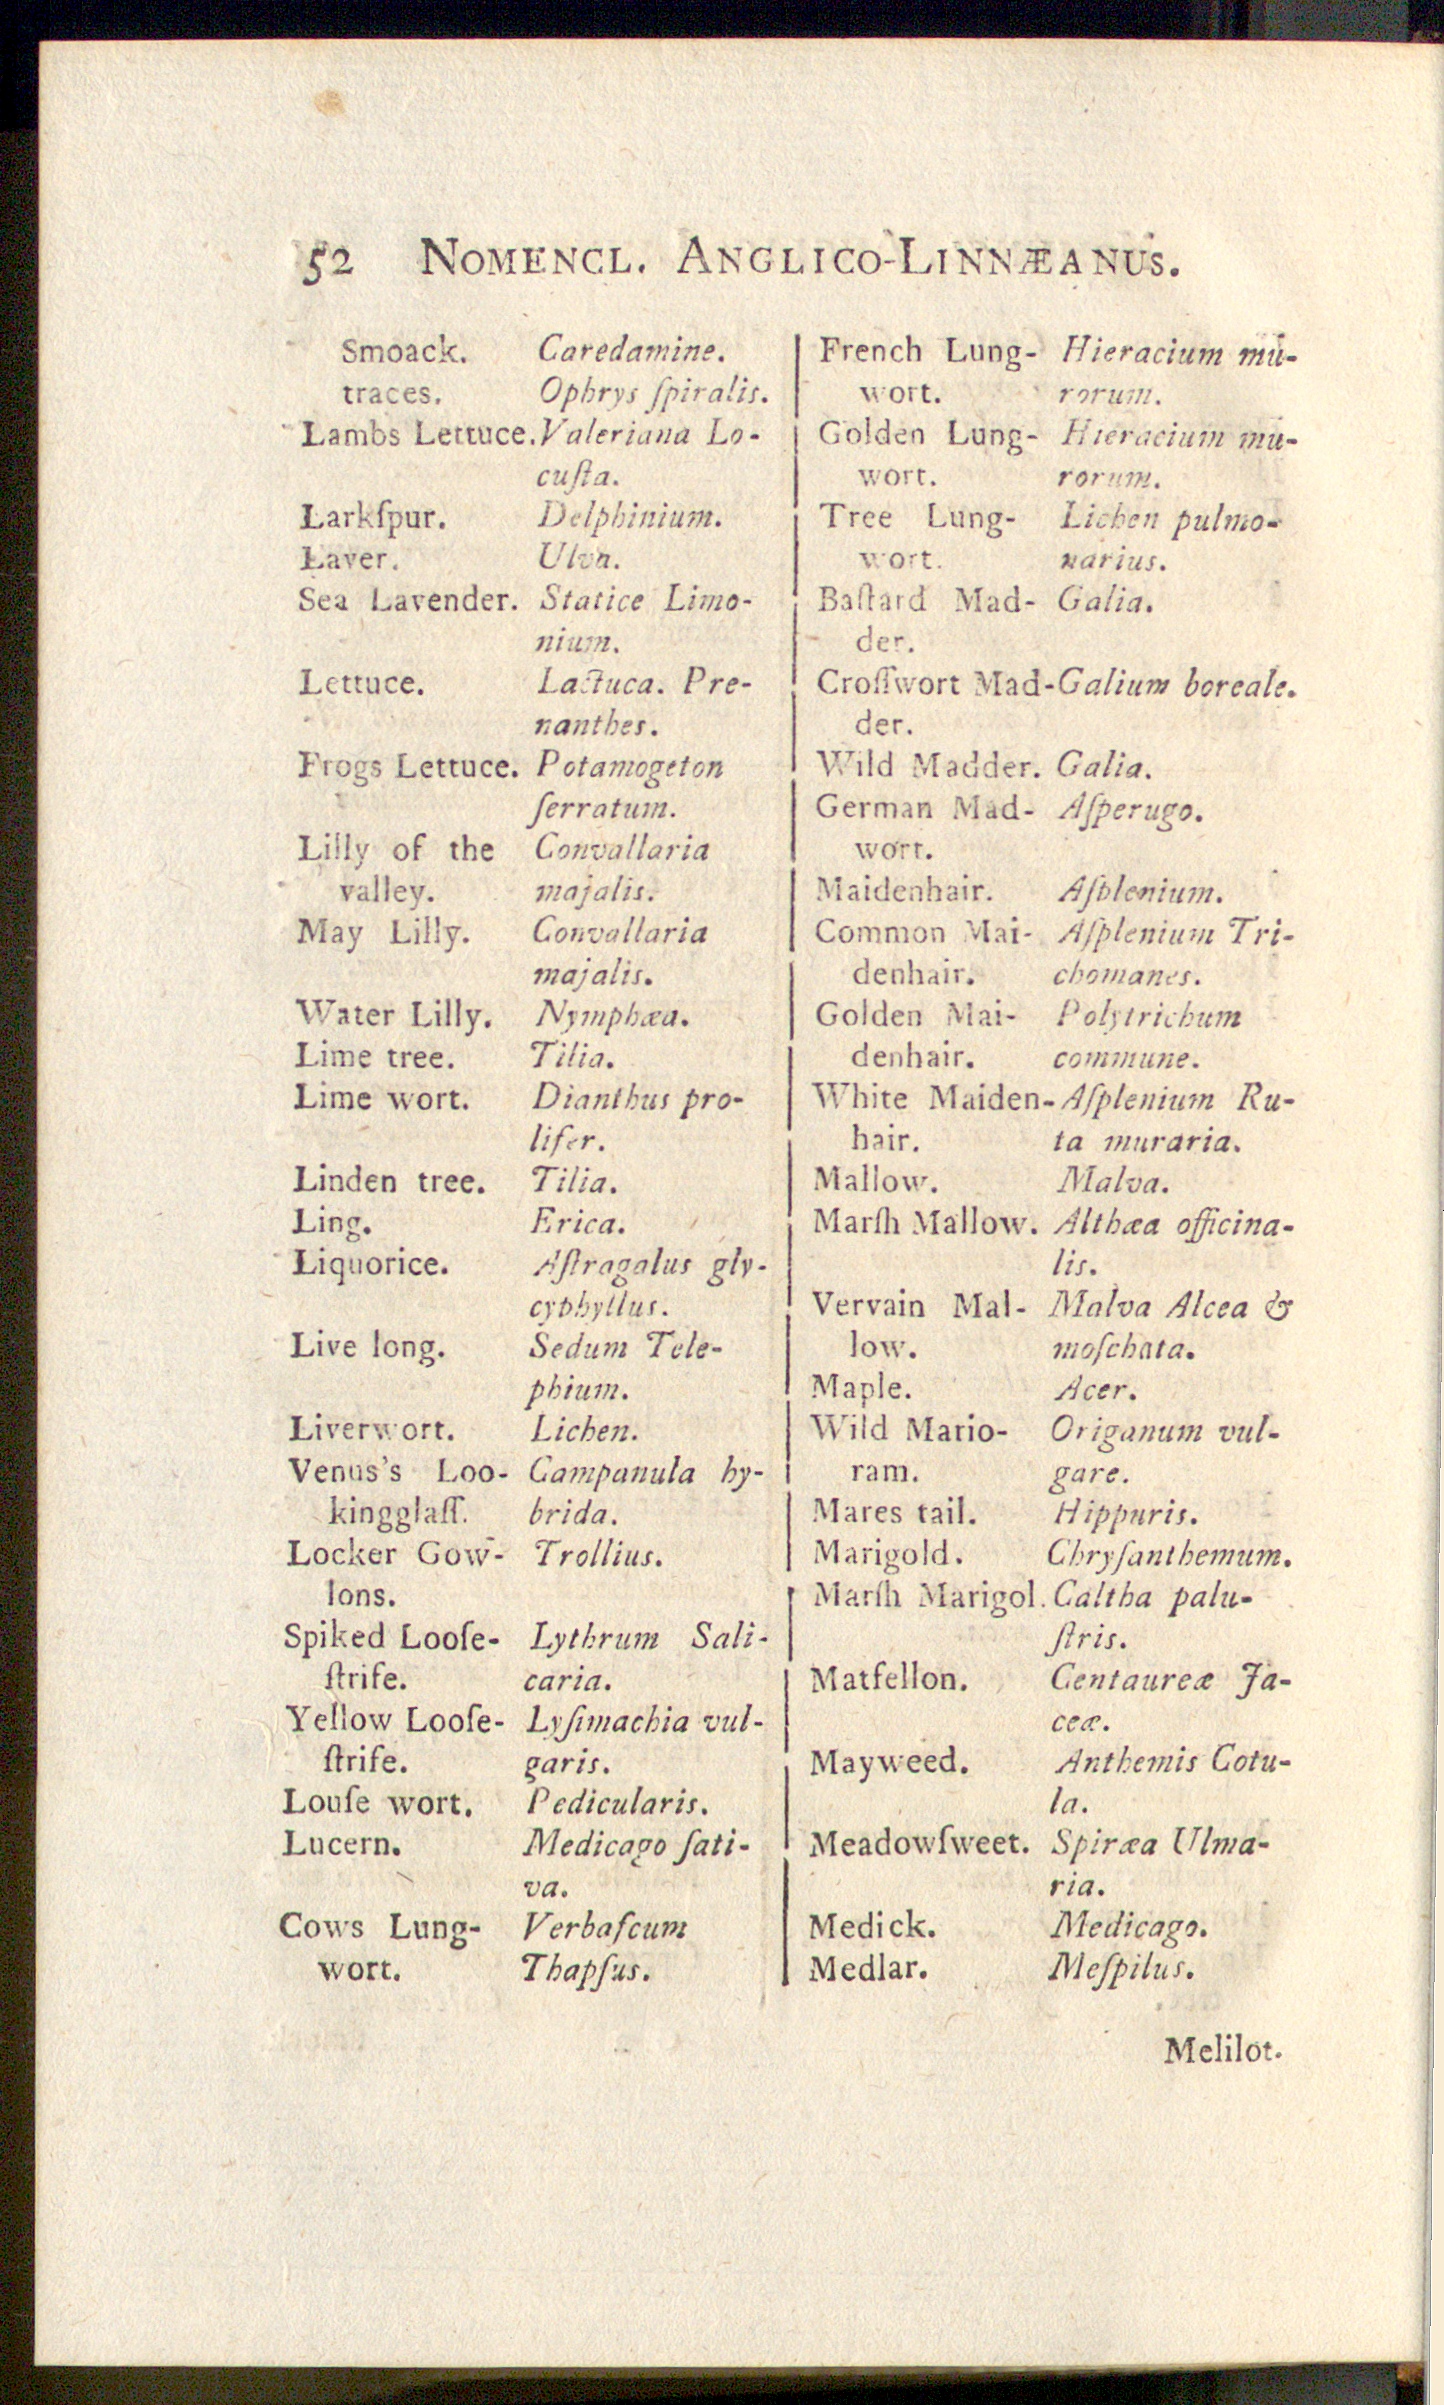 52 NOMENCL. ANGLICO-LINNÆANUS.
Smoack. Caredamine.
traces. Ophrys ſpiralis.
Lambs Lettuce. Valeriana Lo-
cuſta.
Larkſpur. Delphinium.
Laver. Ulva.
Sea Lavender. Statice Limo-
nium.
Lettuce. Lactuca. Pre-
nanthes.
Frogs Lettuce. Potamogeton
ſerratum.
Lilly of the Convallaria
valley. majalis.
May Lilly. Convallaria
majalis.
Water Lilly. Nymphæa.
Lime tree. Tilia.
Lime wort. Dianthus pro-
lifer.
Linden tree. Tilia.
Ling. Erica.
Liquorice. Aſtragalus gly-
cyphyllus.
Live long. Sedum Tele-
phium.
Liverwort. Lichen.
Venus's Loo- Campanula hy-
kingglaſſ. brida.
Locker Gow- Trollius.
lons.
Spiked Looſe- Lythrum Sali-
ſtrife. caria.
Yellow Looſe- Lyſimachia vul-
ſtrife. garis.
Louſe wort. Pedicularis.
Lucern. Medicago ſati-
va.
Cows Lung- Verbaſcum
wort. Thapſus.
French Lung- Hieracium mu-
wort. rorum.
Golden Lung- Hieracium mu-
wort. rorum.
Tree Lung- Lichen pulmo-
wort. narius.
Baſtard Mad- Galia.
der.
Croſſwort Mad- Galium boreale.
der.
Wild Madder. Galia.
German Mad- Aſperugo.
wort.
Maidenhair. Aſplenium.
Common Mai- Aſplenium Tri-
denhair. chomanes.
Golden Mai- Polytrichum
denhair. commune.
White Maiden- Aſplenium Ru-
hair. ta muraria.
Mallow. Malva.
Marſh Mallow. Althæa officina-
lis.
Vervain Mal- Malva Alcea &
low. moſchata.
Maple. Acer.
Wild Mario- Origanum vul-
ram. gare.
Mares tail. Hippuris.
Marigold. Chryſanthemum.
Marſh Marigol. Caltha palu-
ſtris.
Matfellon. Centaureæ Ja-
ceæ.
Mayweed. Anthemis Cotu-
la.
Meadowſweet. Spiræa Ulma-
ria.
Medick. Medicago.
Medlar. Meſpilus.
Melilot.